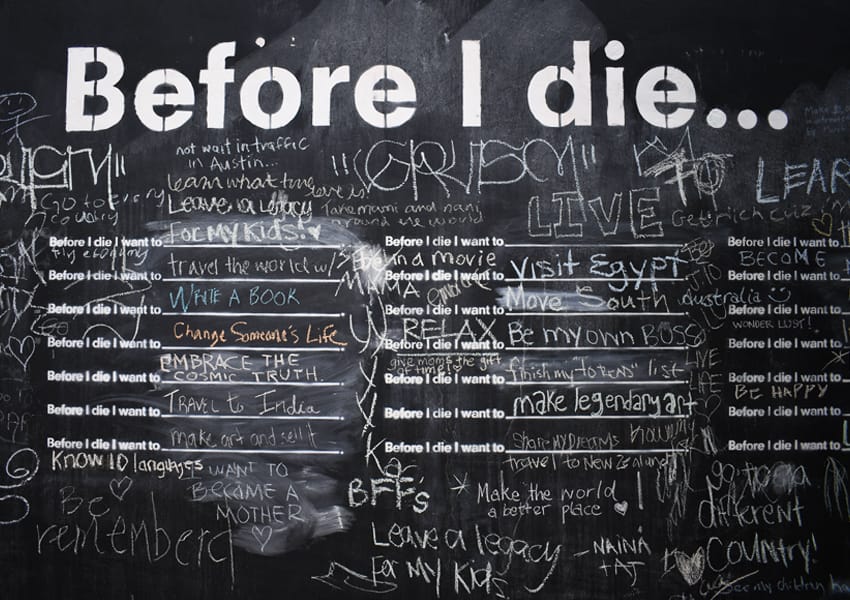 Before I die...
not wait in traffic
in Austin...
learn what true love is!
Leave a Legacy
For My Kids!
Take mami and nani
around the world
LIVE
TO
LEAR
Get rich
Go to every
country
Before I die I want to
fly
Before I die I want to travel the world w/
Before I die I want to WRITE A BOOK
Before I die I want to Change Someone's Life
EMBRACE THE
Before I die I want to COSMIC TRUTH.
Before I die I want to TRAVEL to India
Before I die I want to make art and sell it
Know 10 languages
I WANT TO
BECOME A
MOTHER
Be
remembered
Before I die I want to
Be in a movie
Before I die I want to Visit Egypt
Before I die I want to Move South Australia
RELAX
Before I die I want to Be my own BOSS
give moms the gift
of time!
Before I die I want to finish my "to READ" list
Before I die I want to make legendary art
Before I die I want to Share MY DREAMS
travel to New Zealand
BFF's
Make the world
a better place
Leave a legacy
For My Kids
- NAINA
TAJ
go to a
different
Country!
see my children
Before I die I want to
BECOME
Before I die I want to
Before I die I want to
WONDER LUST!
Before I die I want to
Before I die I want to
BE HAPPY
Before I die I want to
Before I die I want to
LIVE
LIFE